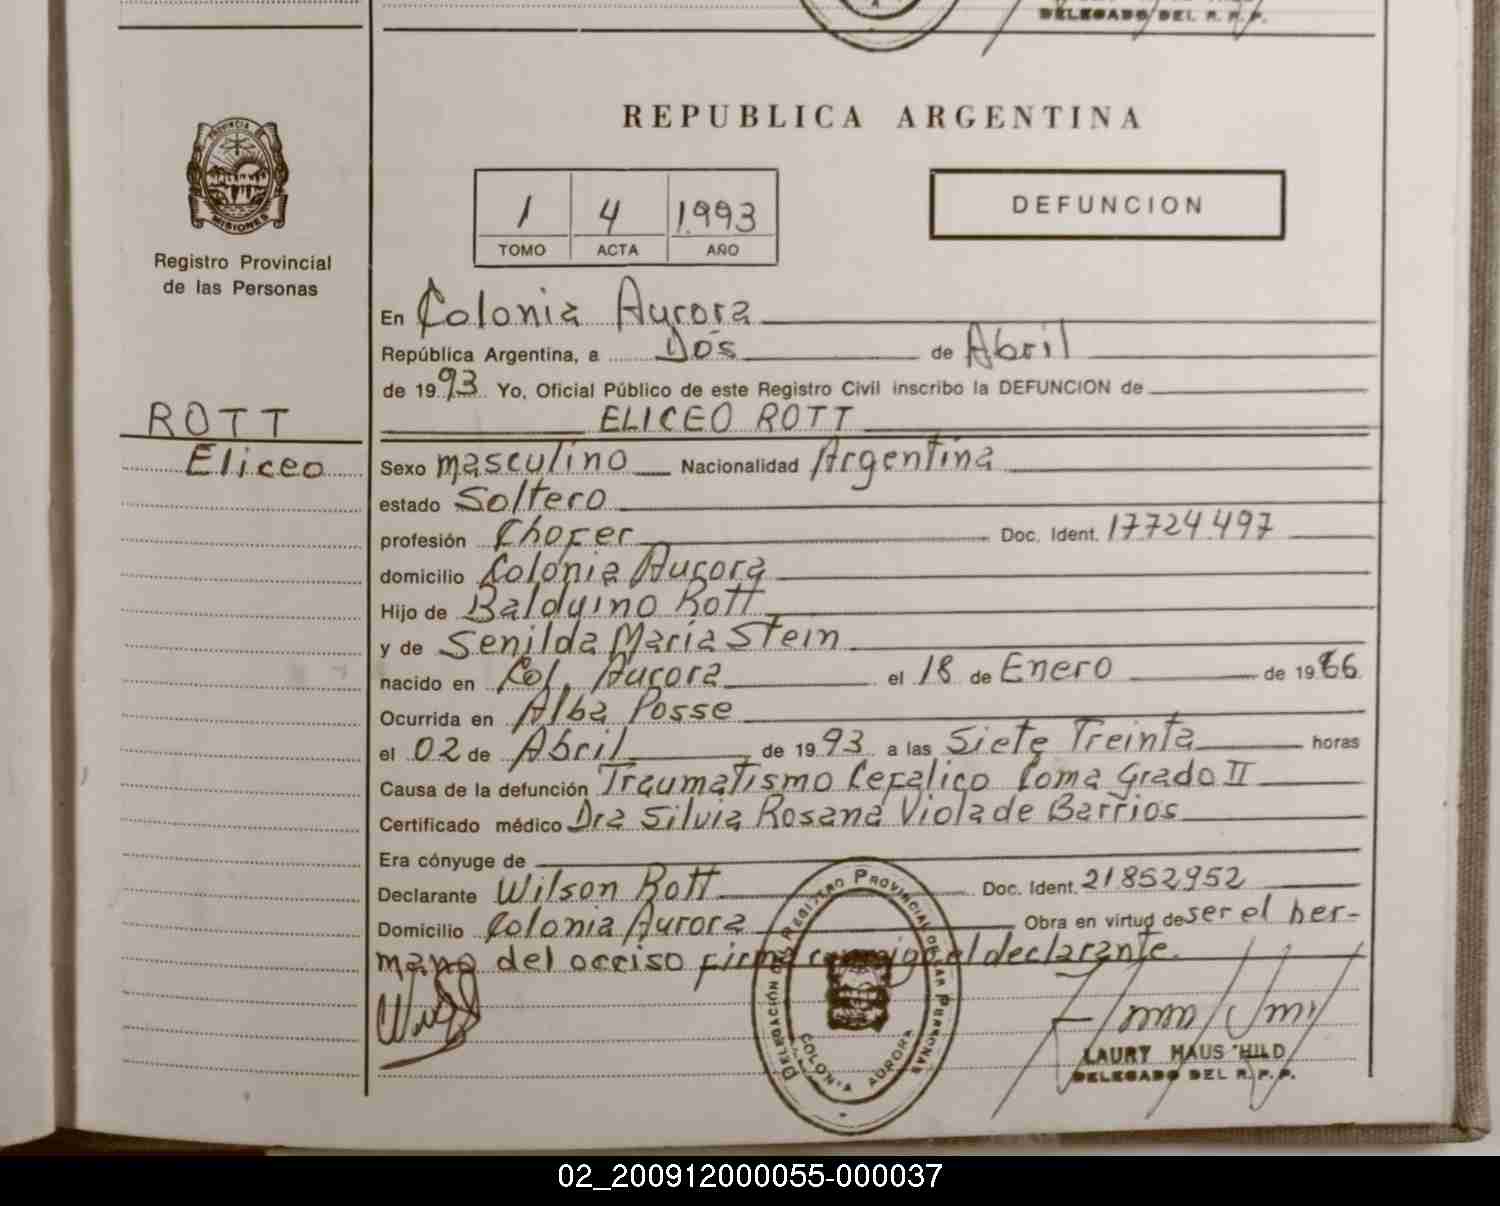 DELEGADO DEL R. P. P.
REPUBLICA ARGENTINA
PROVINCIA DE
MISIONES
1 4 1.993
TOMO ACTA AÑO
DEFUNCION
Registro Provincial
de las Personas
En Colonia Aurora
República Argentina, a Dos de Abril
de 1993 Yo, Oficial Público de este Registro Civil inscribo la DEFUNCION de
ROTT
ELICEO ROTT
Eliceo
Sexo masculino Nacionalidad Argentina
estado Soltero
profesión Chofer Doc. Ident. 17724.497
domicilio Colonia Aurora
Hijo de Balduino Rott
y de Senilda María Stein
nacido en Col. Aurora el 18 de Enero de 1966
Ocurrida en Alba Posse
el 02 de Abril de 1993 a las Siete Treinta horas
Causa de la defunción Traumatismo Cefalico Coma Grado II
Certificado médico Dra Silvia Rosana Viola de Barrios
Era cónyuge de
Declarante Wilson Rott Doc. Ident. 21852952
Domicilio Colonia Aurora Obra en virtud de ser el her-
mano del occiso firma conmigo el declarante.
DELEGACIÓN DEL REGISTRO PROVINCIAL DE LAS PERSONAS
COLONIA AURORA
LAURY HAUS HILD
DELEGADO DEL R. P. P.
02_200912000055-000037